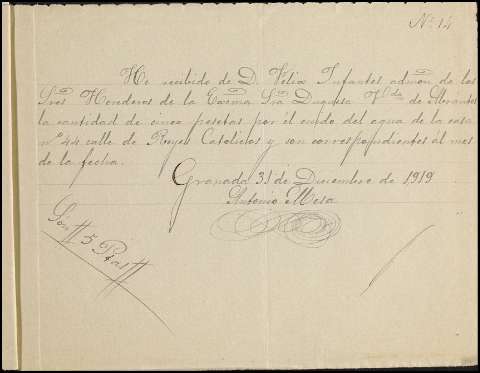 Nº 14
He recibido de D. Felix Infantes admón de los
Sres Herederos de la Excma Sra Duquesa Vda de
la cantidad de cinco pesetas por el cuido del agua de la casa
nº 44 calle de Reyes Catolicos y son correspondientes al mes
de la fecha.
Granada 31 de Diciembre de 1919
Antonio Mesa
Son 5 Ptas